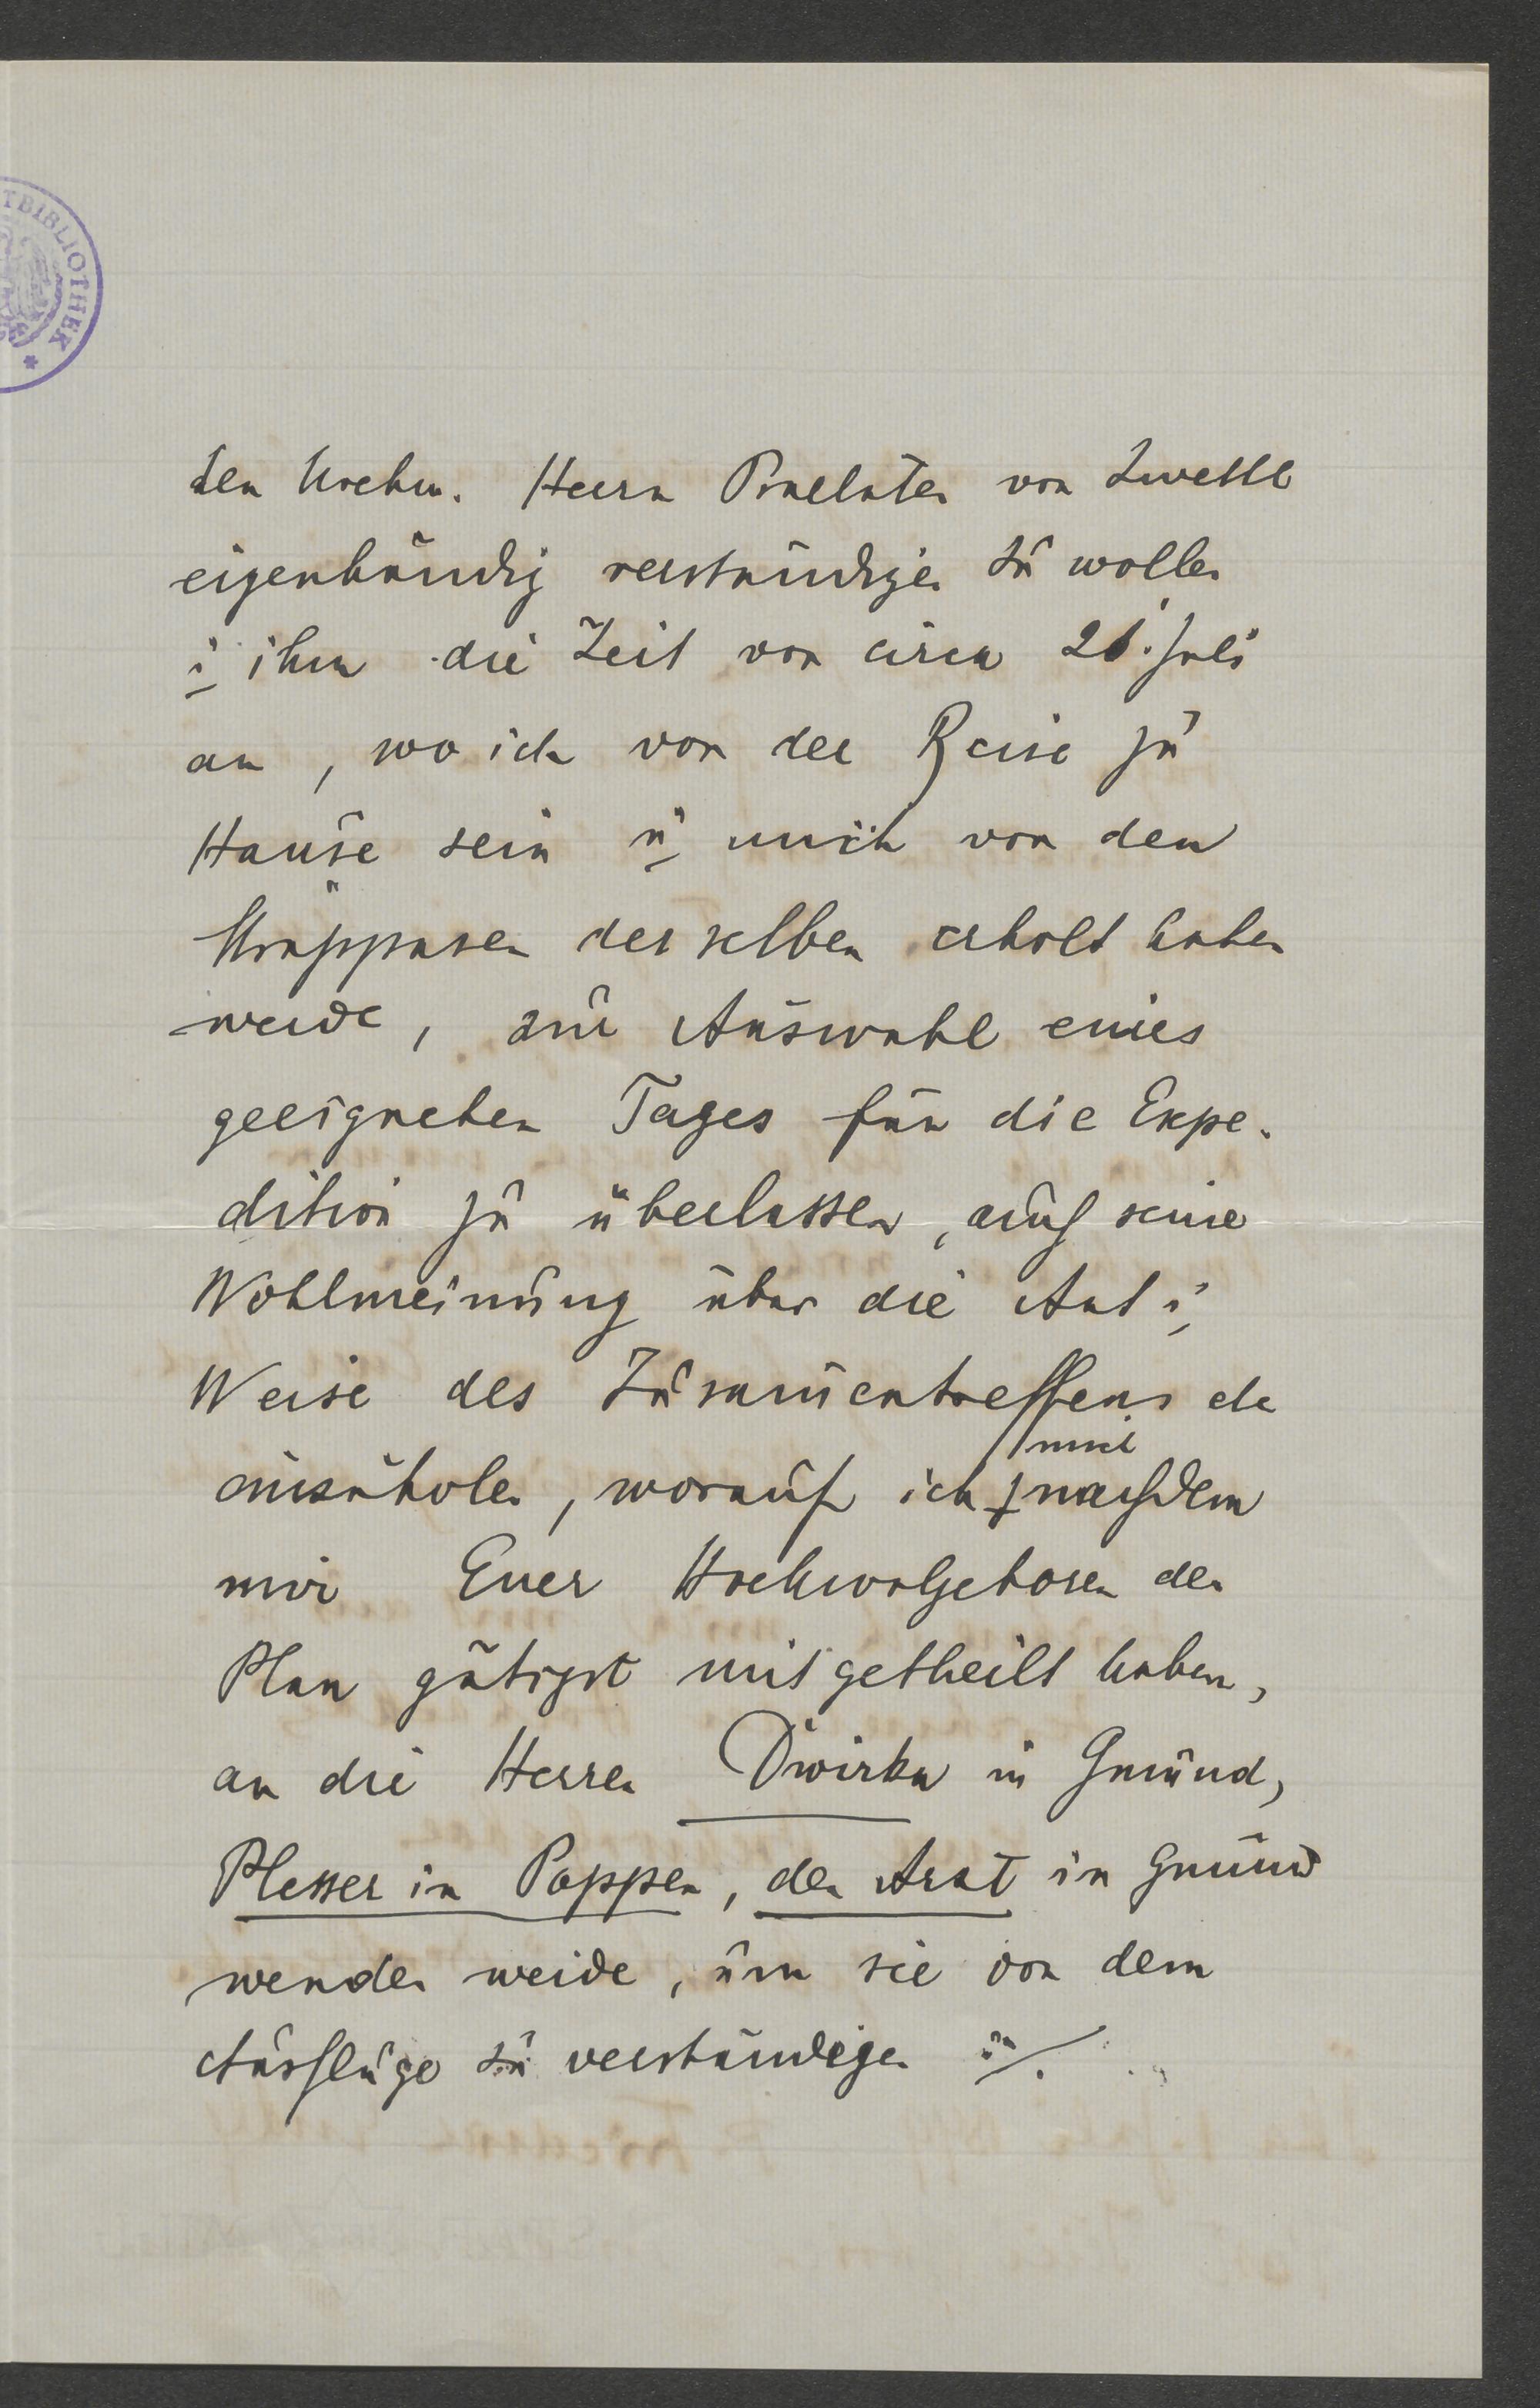 TBIBLIOTHEK
den hochw. Herrn Praelaten von Zwettl
eigenhändig verständigen zu wollen
u. ihm die Zeit von circa 26. Juli
an, wo ich von der Reise zu
Hause sein u. mich von den
Strappasen derselben erholt haben
werde, zur Auswahl eines
geeigneten Tages für die Expe-
dition zu überlassen, auch seine
Wohlmeinung über die Art u.
Weise des Zusammentreffens etc
auszuholen, worauf ich mich nachdem
mir Euer Hochwolgeboren den
Plan gütigst mitgetheilt haben,
an die Herren Dwirka in Gmünd,
Plesser in Poppen, den Arzt in Gmünd
wenden werde, um sie von dem
Ausfluge zu verständigen